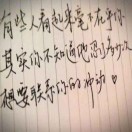 有些人看起来毫不在乎你
其实你不知道他忍了多少次
想要联系你的冲动